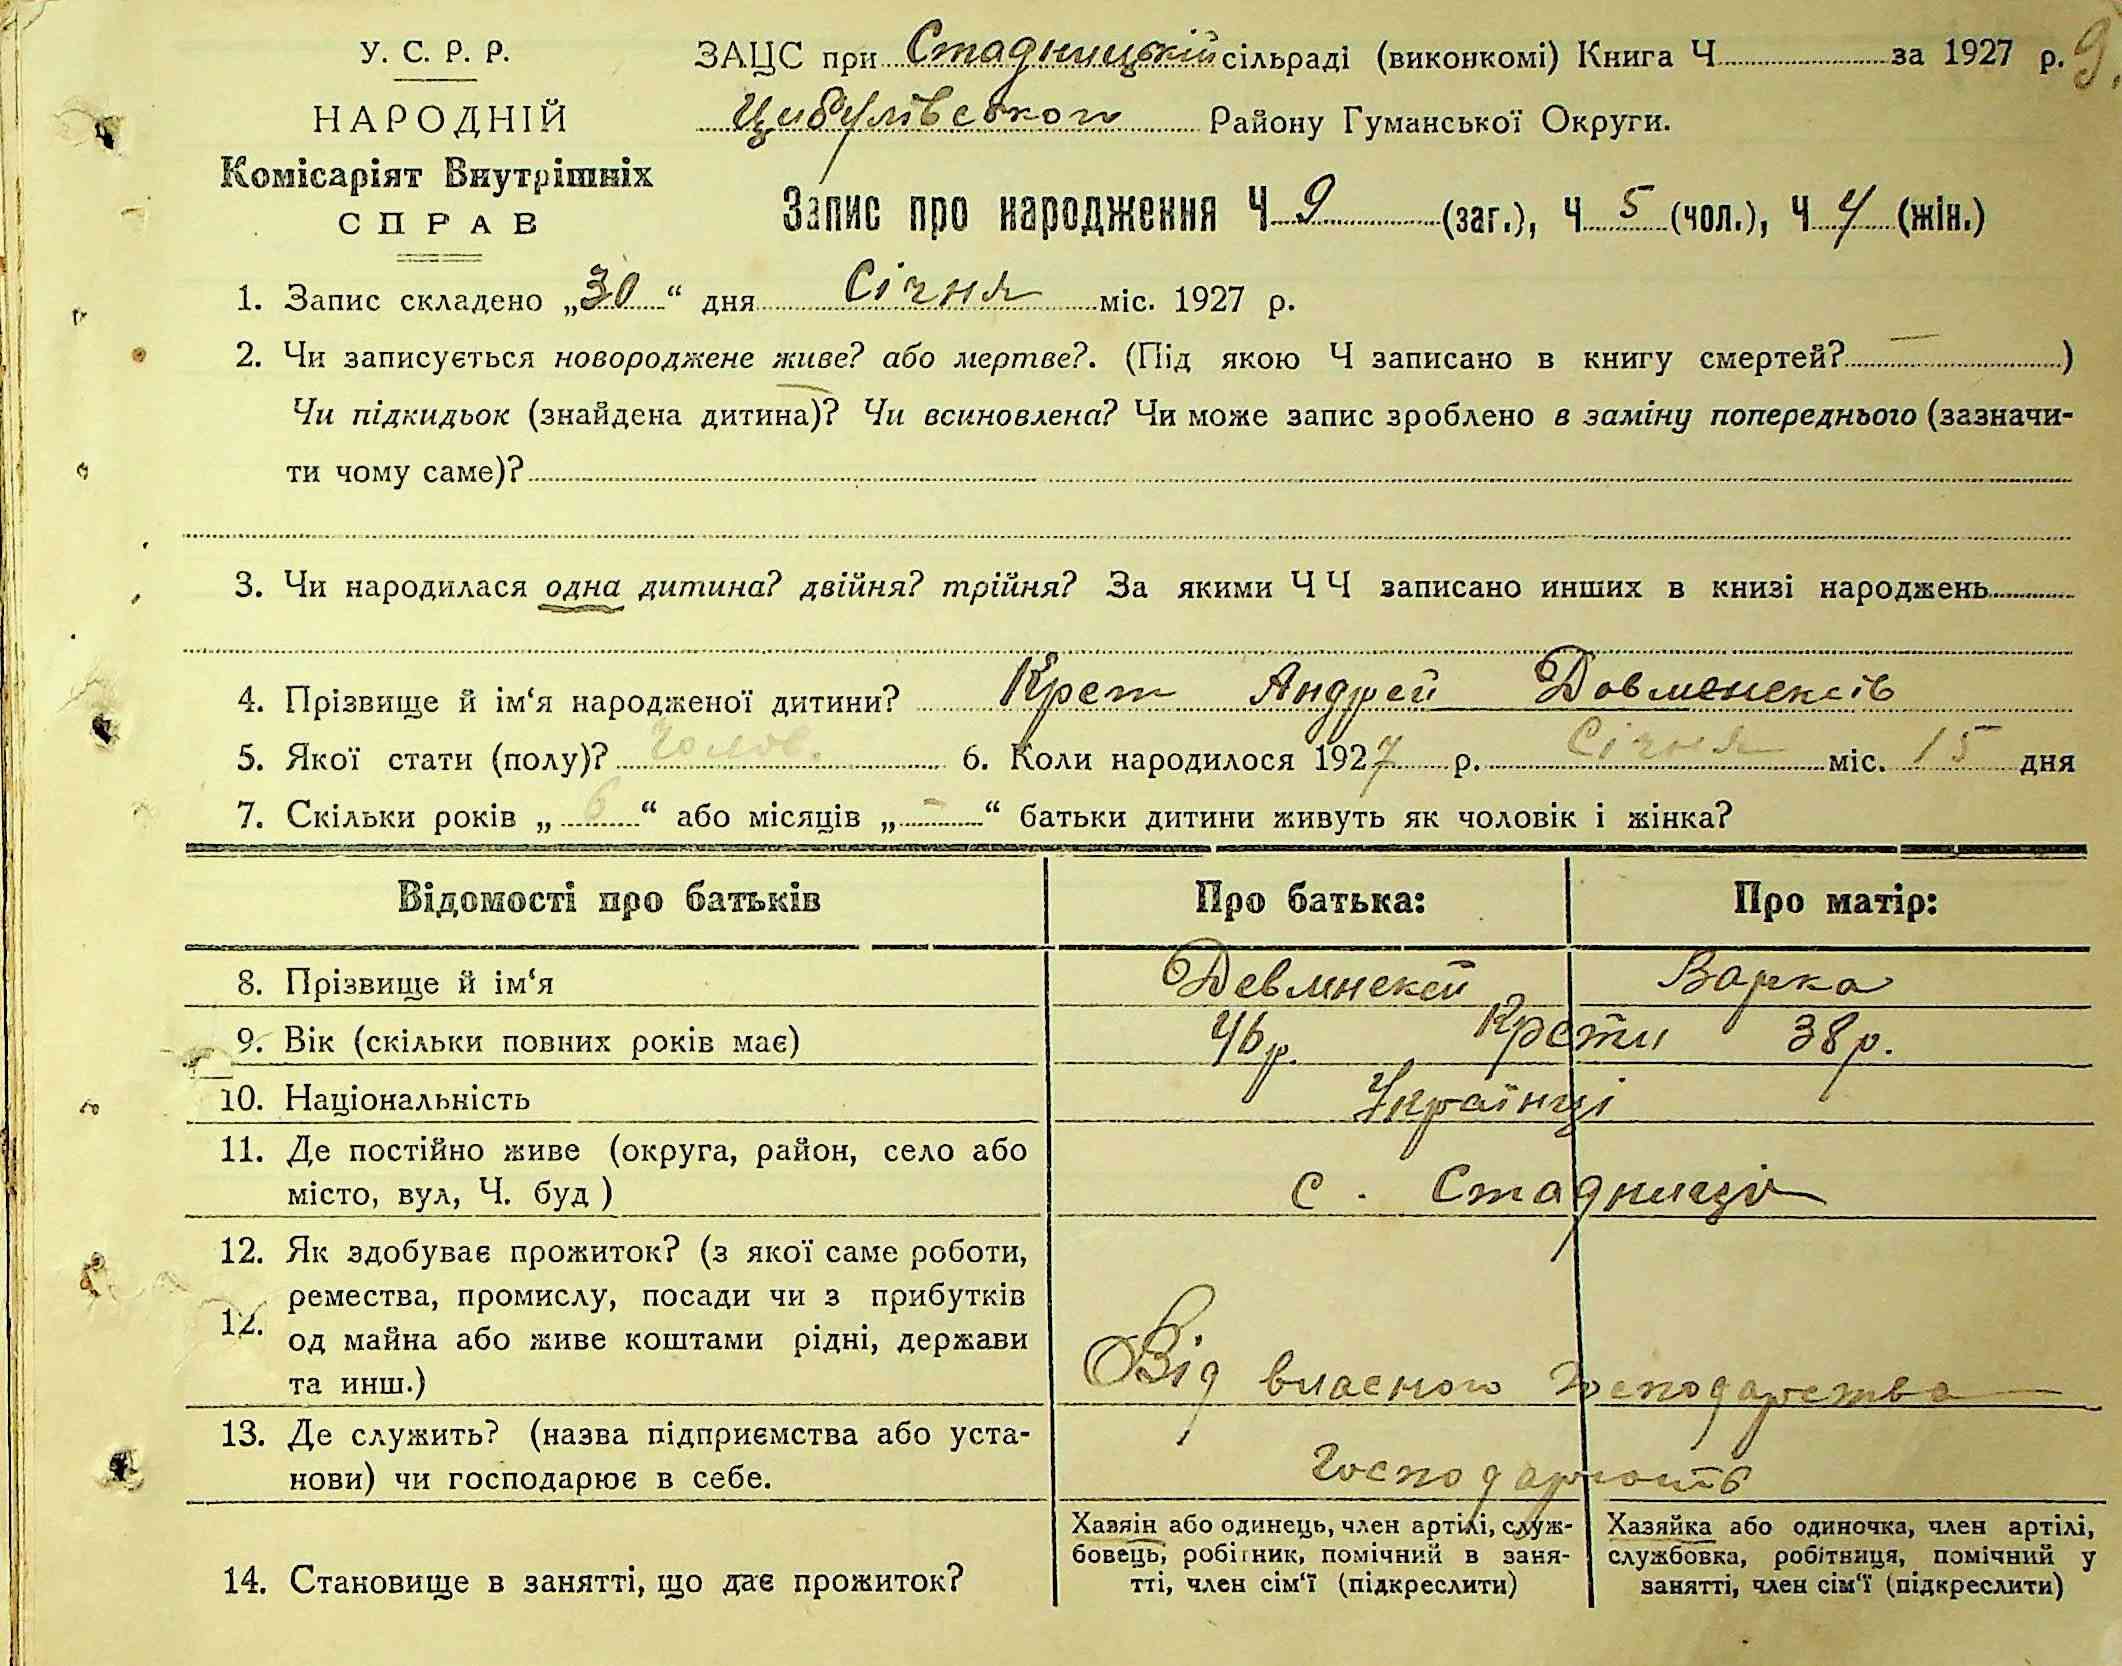 У. С. Р. Р.
НАРОДНІЙ
Комісаріят Внутрішніх
СПРАВ
ЗАЦС при Стадницькій сільраді (виконкомі) Книга Ч за 1927 р. 9.
Цибулівського Району Гуманської Округи.
Запис про народження Ч 9 (заг.), Ч 5 (чол.), Ч 4 (жін.)
1. Запис складено „30“ дня Січня міс. 1927 р.
2. Чи записується новороджене живе? або мертве?. (Під якою Ч записано в книгу смертей? — )
Чи підкидьок (знайдена дитина)? Чи всиновлена? Чи може запис зроблено в заміну попереднього (зазначи-
ти чому саме)?
3. Чи народилася одна дитина? двійня? трійня? За якими ЧЧ записано инших в книзі народжень
4. Прізвище й ім‘я народженої дитини? Крет Андрей
5. Якої стати (полу)? Чолов. 6. Коли народилося 1927 р. Січня міс. 15 дня
7. Скільки років „6“ або місяців „—“ батьки дитини живуть як чоловік і жінка?
Відомості про батьків Про батька: Про матір:
8. Прізвище й ім‘я Варка
9. Вік (скільки повних років має) 46р. Крети 38р.
10. Національність Українці
11. Де постійно живе (округа, район, село або
місто, вул, Ч. буд ) с. Стадниця
12. Як здобуває прожиток? (з якої саме роботи,
ремества, промислу, посади чи з прибутків
12. од майна або живе коштами рідні, держави
та инш.) Від власного господарства
13. Де служить? (назва підприємства або уста-
нови) чи господарює в себе. Господарюють
14. Становище в занятті, що дає прожиток?
Хазяін або одинець, член артілі, служ-
бовець, робітник, помічний в заня-
тті, член сім‘ї (підкреслити)
Хазяйка або одиночка, член артілі,
службовка, робітниця, помічний у
занятті, член сім‘ї (підкреслити)